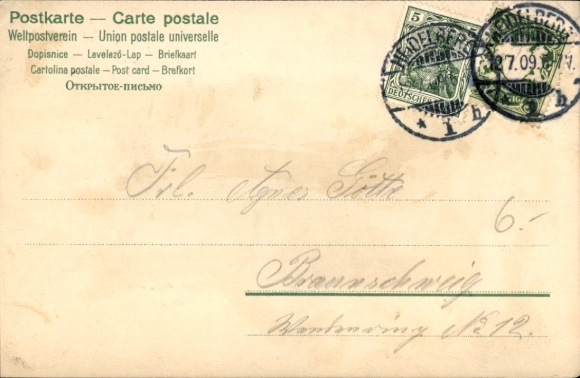 Postkarte — Carte postale
Weltpostverein — Union postale universelle
Dopisnice — Levelező-Lap — Briefkaart
Cartolina postale — Post card — Brefkort
Открытое-письмо
5
DEUTSCHES
HEIDELBERG
* 1 h.
HEIDELBERG
12.7.09. V.
* h
Frl. Agnes Götte
6.-
Braunschweig
Wendenring No 12.